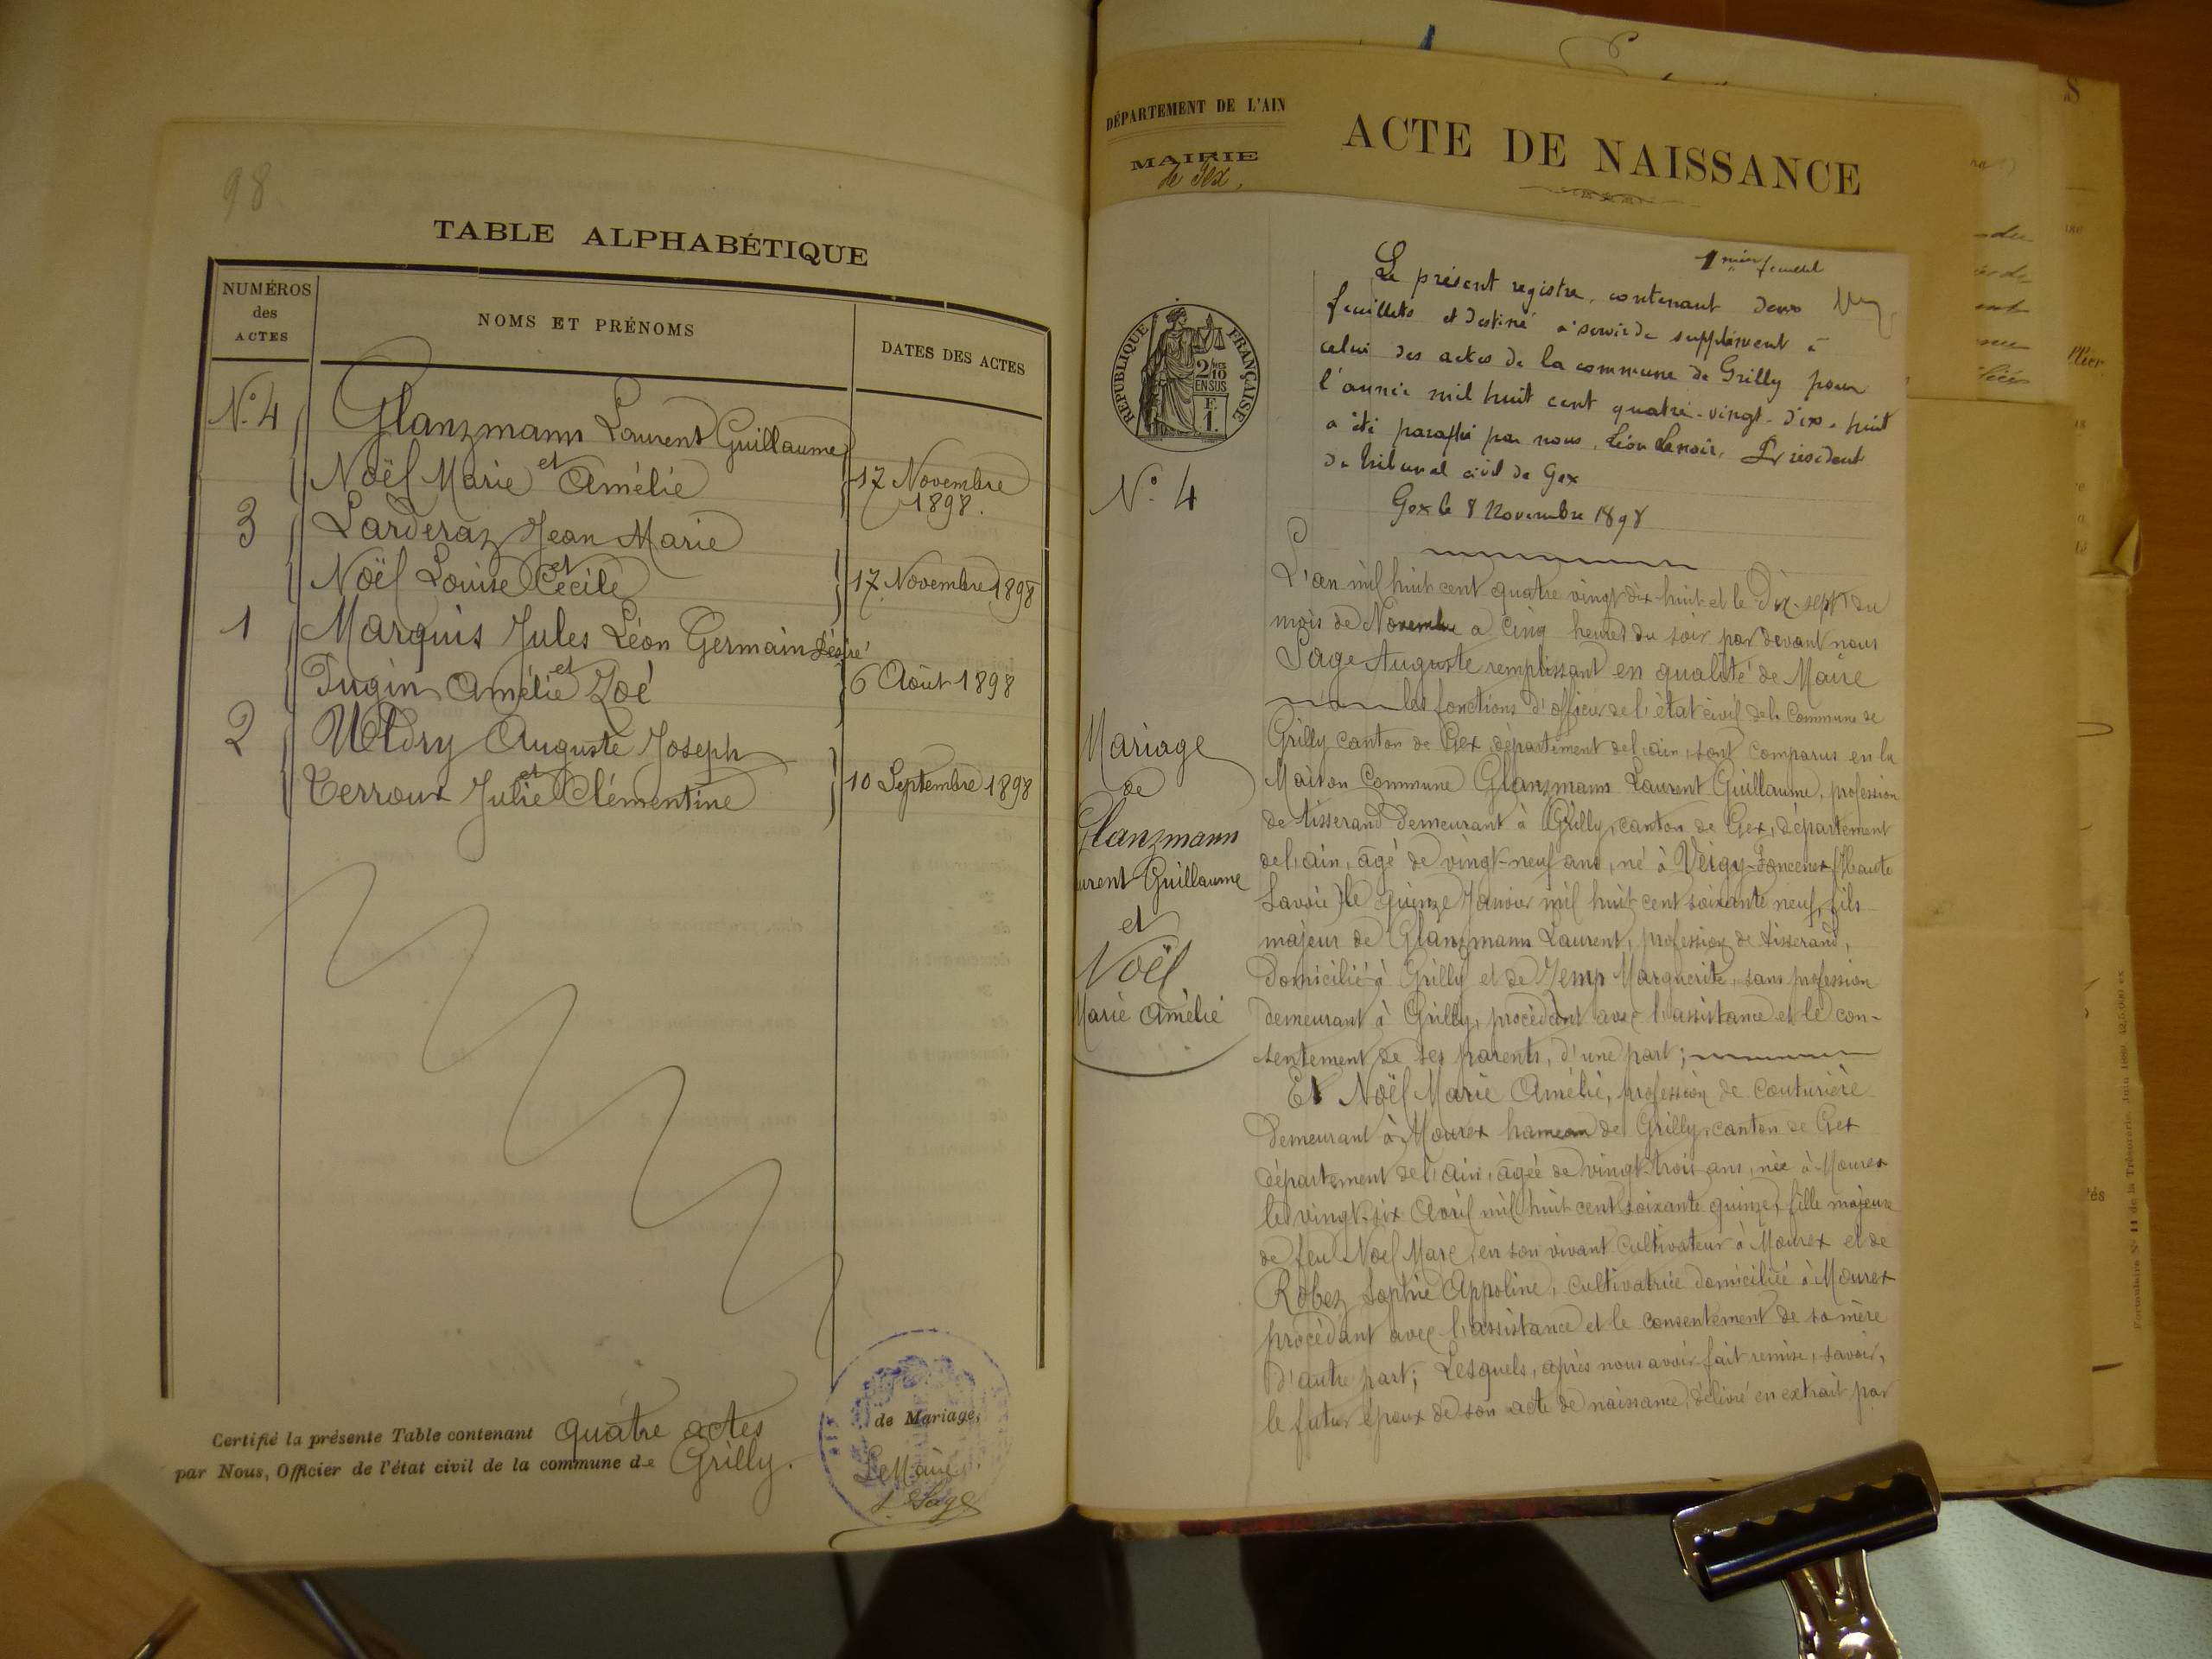 98
TABLE ALPHABÉTIQUE
NUMÉROS
des
ACTES
NOMS ET PRÉNOMS
DATES DES ACTES
N° 4
Glanzmann Laurent Guillaume
et
Noël Marie Amélie
17 Novembre
1898.
3
Larderaz Jean Marie
et
Noël Louise Cécile
17 Novembre 1898
1
Marquis Jules Léon Germain Désiré
et
Pugin Amélie Zoé
6 Août 1898
2
Uldry Auguste Joseph
et
Terroux Julie Clémentine
10 Septembre 1898
Certifié la présente Table contenant quatre actes de Mariage,
par Nous, Officier de l'état civil de la commune de Grilly.
Le Maire
Sage
DÉPARTEMENT DE L'AIN
MAIRIE
de Gex,
ACTE DE NAISSANCE
RÉPUBLIQUE FRANÇAISE
2/10
EN SUS
F.
1.
1 feuillet
Le présent registre, contenant deux
feuillets et destiné à servir de supplément à
celui des actes de la commune de Grilly pour
l'année mil huit cent quatre-vingt-dix-huit
a été paraphé par nous, Léon Lenoir, Président
du tribunal civil de Gex
Gex le 8 Novembre 1898
N° 4
Mariage
de
Glanzmann
urent Guillaume
et
Noël
Marie Amélie
L'an mil huit cent quatre vingt dix huit et le Dix-sept du
mois de Novembre a Cinq heures du soir par devant nous
Sage Auguste remplissant en qualité de Maire
les fonctions d'officier de l'état civil de la Commune de
Grilly canton de Gex, département de l'ain, sont comparus en la
Maison Commune Glanzmann Laurent Guillaume, profession
de tisserand demeurant à Grilly, canton de Gex, département
de l'ain, âgé de vingt-neuf ans, né à Veigy-Foncenex (Haute
Savoie) le quinze Janvier mil huit cent soixante neuf, fils
majeur de Glanzmann Laurent, profession de tisserand,
domicilié à Grilly et de Zemp Marguerite, sans profession
demeurant à Grilly, procédant avec l'assistance et le con-
sentement de ses parents, d'une part;
Et Noël Marie Amélie, profession de couturière
demeurant à Mourex hameau de Grilly, canton de Gex
département de l'ain, âgée de vingt-trois ans, née à Mourex
le vingt-six Avril mil huit cent soixante quinze, fille majeure
de feu Noël Marc, en son vivant Cultivateur à Mourex et de
Robez Sophie Appoline, cultivatrice domiciliée à Mourex
procédant avec l'assistance et le consentement de sa mère
d'autre part; Lesquels, après nous avoir fait remise, savoir,
le futur époux de son acte de naissance, délivré en extrait par